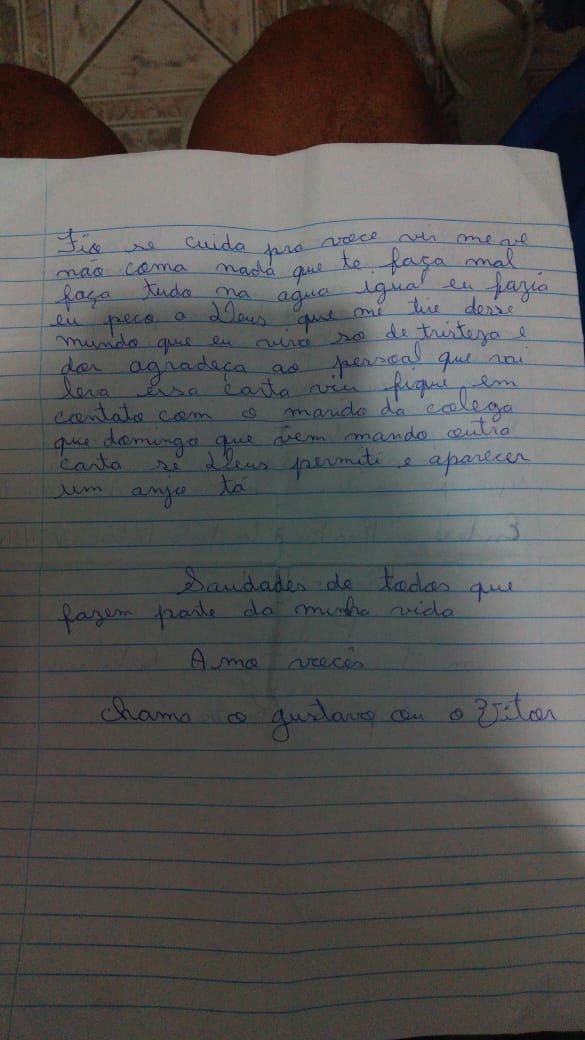 Fio se cuida pra voce vir me ve
não coma nada que te faça mal
faça tudo na agua igual eu fazia
eu peço a Deus que me tire desse
mundo que eu vivo so de tristeza e
dor agradeça ao pessoal que vai
leva essa carta viu fique em
contato com o marido da colega
que domingo que vem mando outra
carta se Deus permiti e aparecer
um anjo tá
Saudades de todos que
fazem parte da minha vida
Amo vocês
chama o gustavo ou o Vitor